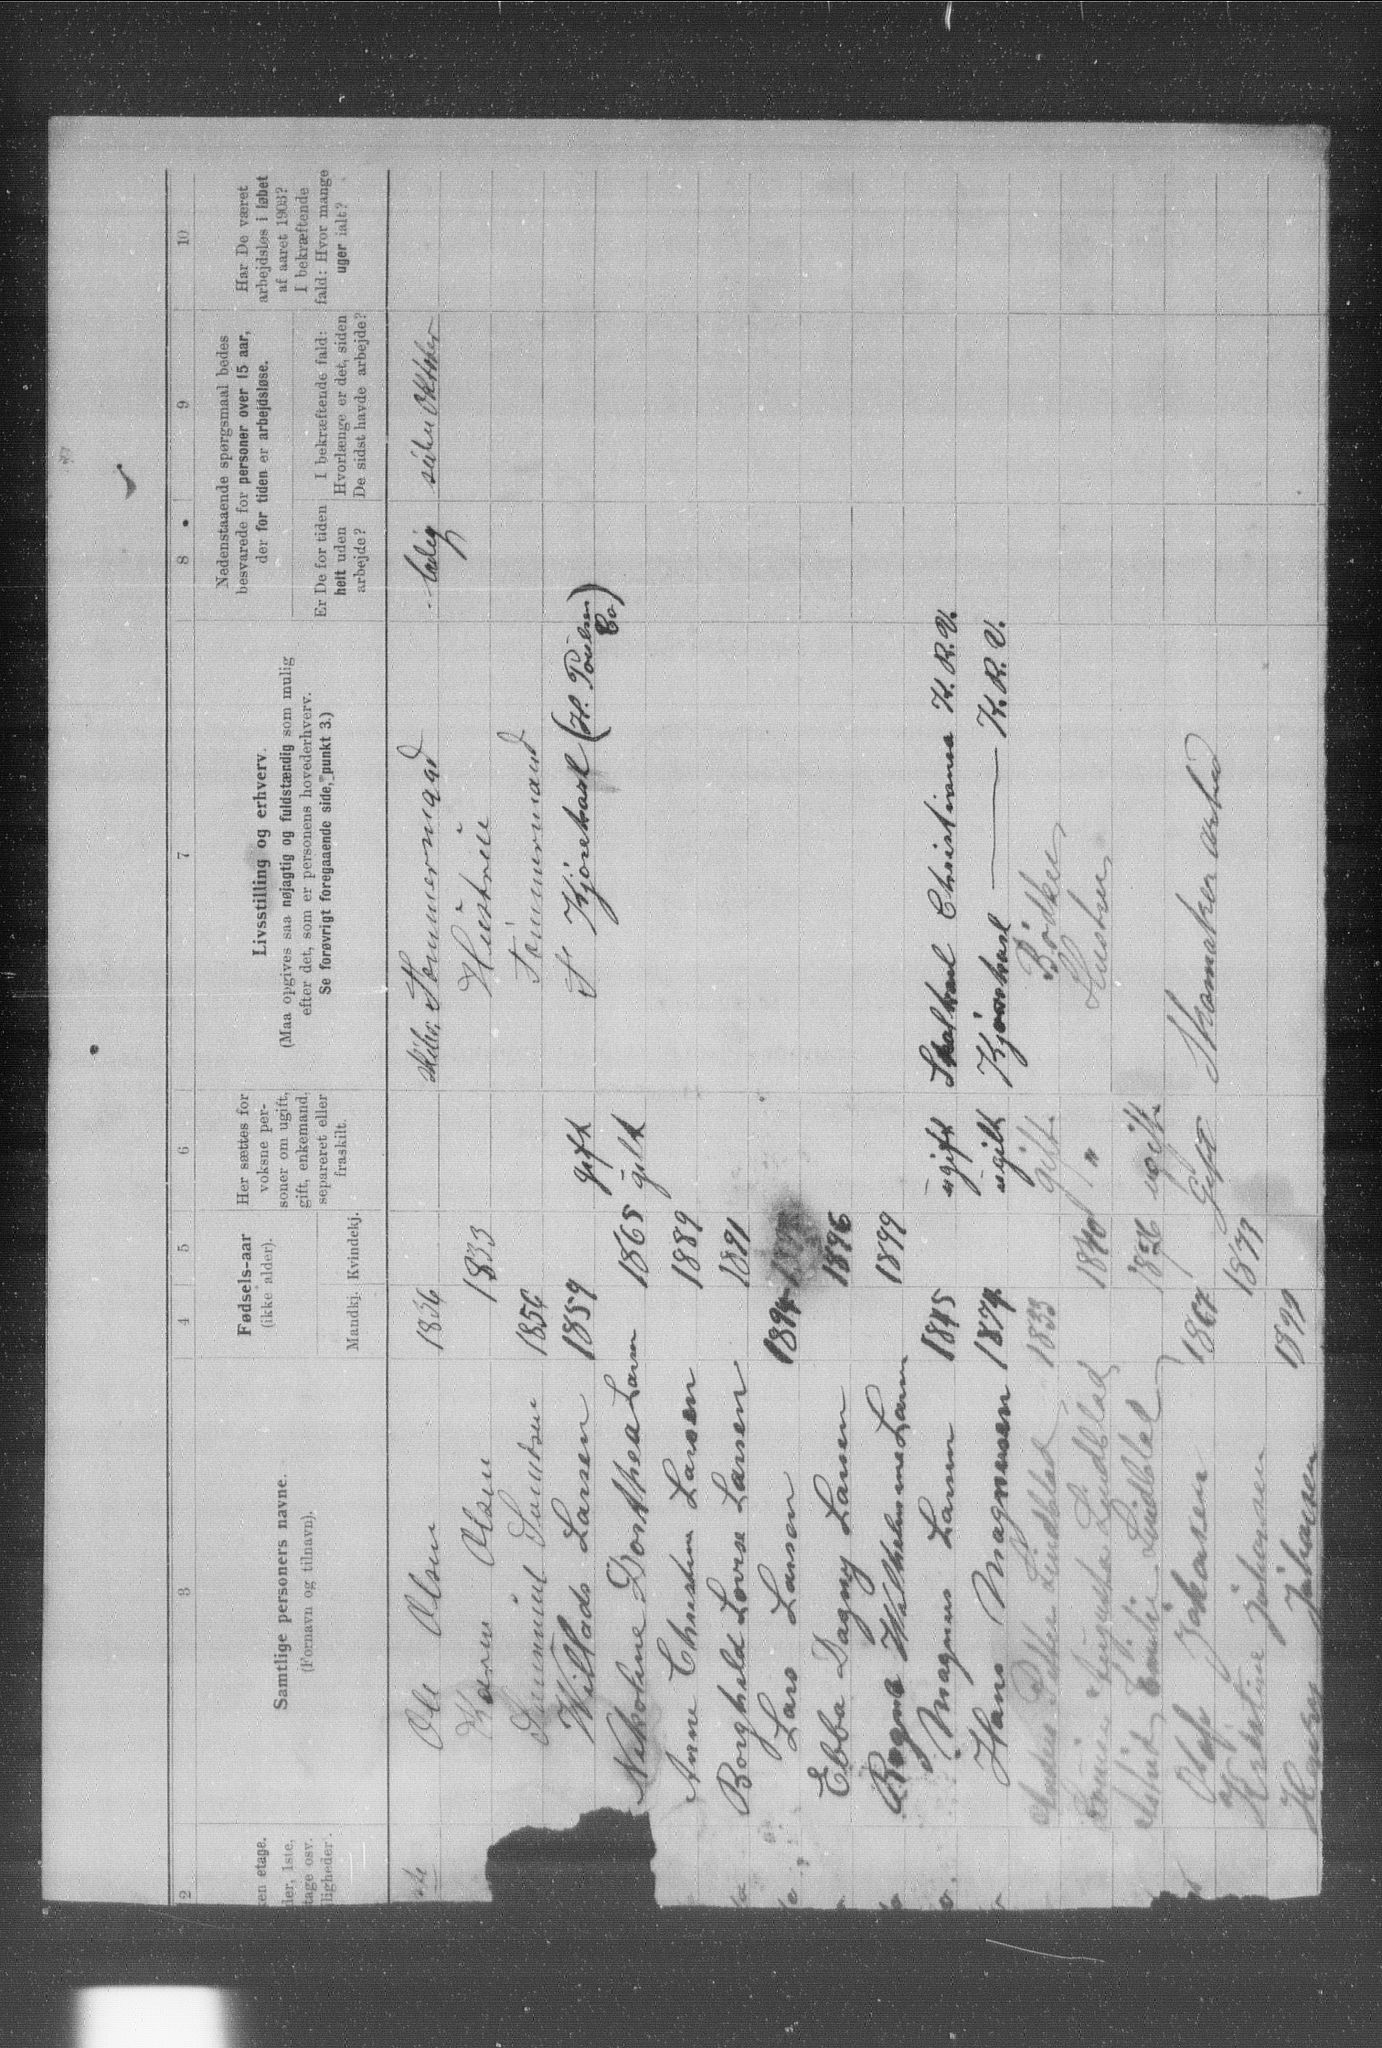 2 3 4 5 6 7 8 9 10
en etage.
der, 1ste,
tage osv.
ligheder.
Samtlige personers navne.
(Fornavn og tilnavn).
Fødsels-aar
(ikke alder).
Mandkj. Kvindekj.
Her sættes for
voksne per-
soner om ugift,
gift, enkemand,
separeret eller
fraskilt.
Livsstilling og erhverv.
(Maa opgives saa nøjagtig og fuldstændig som mulig
efter det, som er personens hovederhverv.
Se forøvrigt foregaaende side, punkt 3.)
Nedenstaaende spørgsmaal bedes
besvarede for personer over 15 aar,
der for tiden er arbejdsløse.
Er De for tiden
helt uden
arbejde?
I bekræftende fald:
Hvorlænge er det, siden
De sidst havde arbejde?
Har De været
arbejdsløs i løbet
af aaret 1903?
I bekræftende
fald: Hvor mange
uger ialt?
Ole Olsen 1836 Tømmermand ledig siden Oktober
Karen Olsen 1833 Hustru
1856 Tømmermand
Willads Larsen 1859 gift Kjørekarl (H. Poulsen Co)
Nikoline Dorthea Larsen 1865 gift
Anne Christin Larsen 1889
Borghild Lovise Larsen 1891
Lars Larsen 1894
Ebba Dagny Larsen 1896
Ragna Wilhelmine Larsen 1899
Magnus Larsen 1845 ugift Christiania K. R. V.
Hans Magnussen 1874 ugift Kjørekarl — K. R. V.
Petter Lindblad 1833 gift. Bødker
Augusta Lindblad 1840 " Hustru
Astrid Emilie Lindblad 1856 ugift.
Olaf Johansen 1867 Gift Skomaker arbeid
Kristine Johansen 1877
Henry Johansen 1899